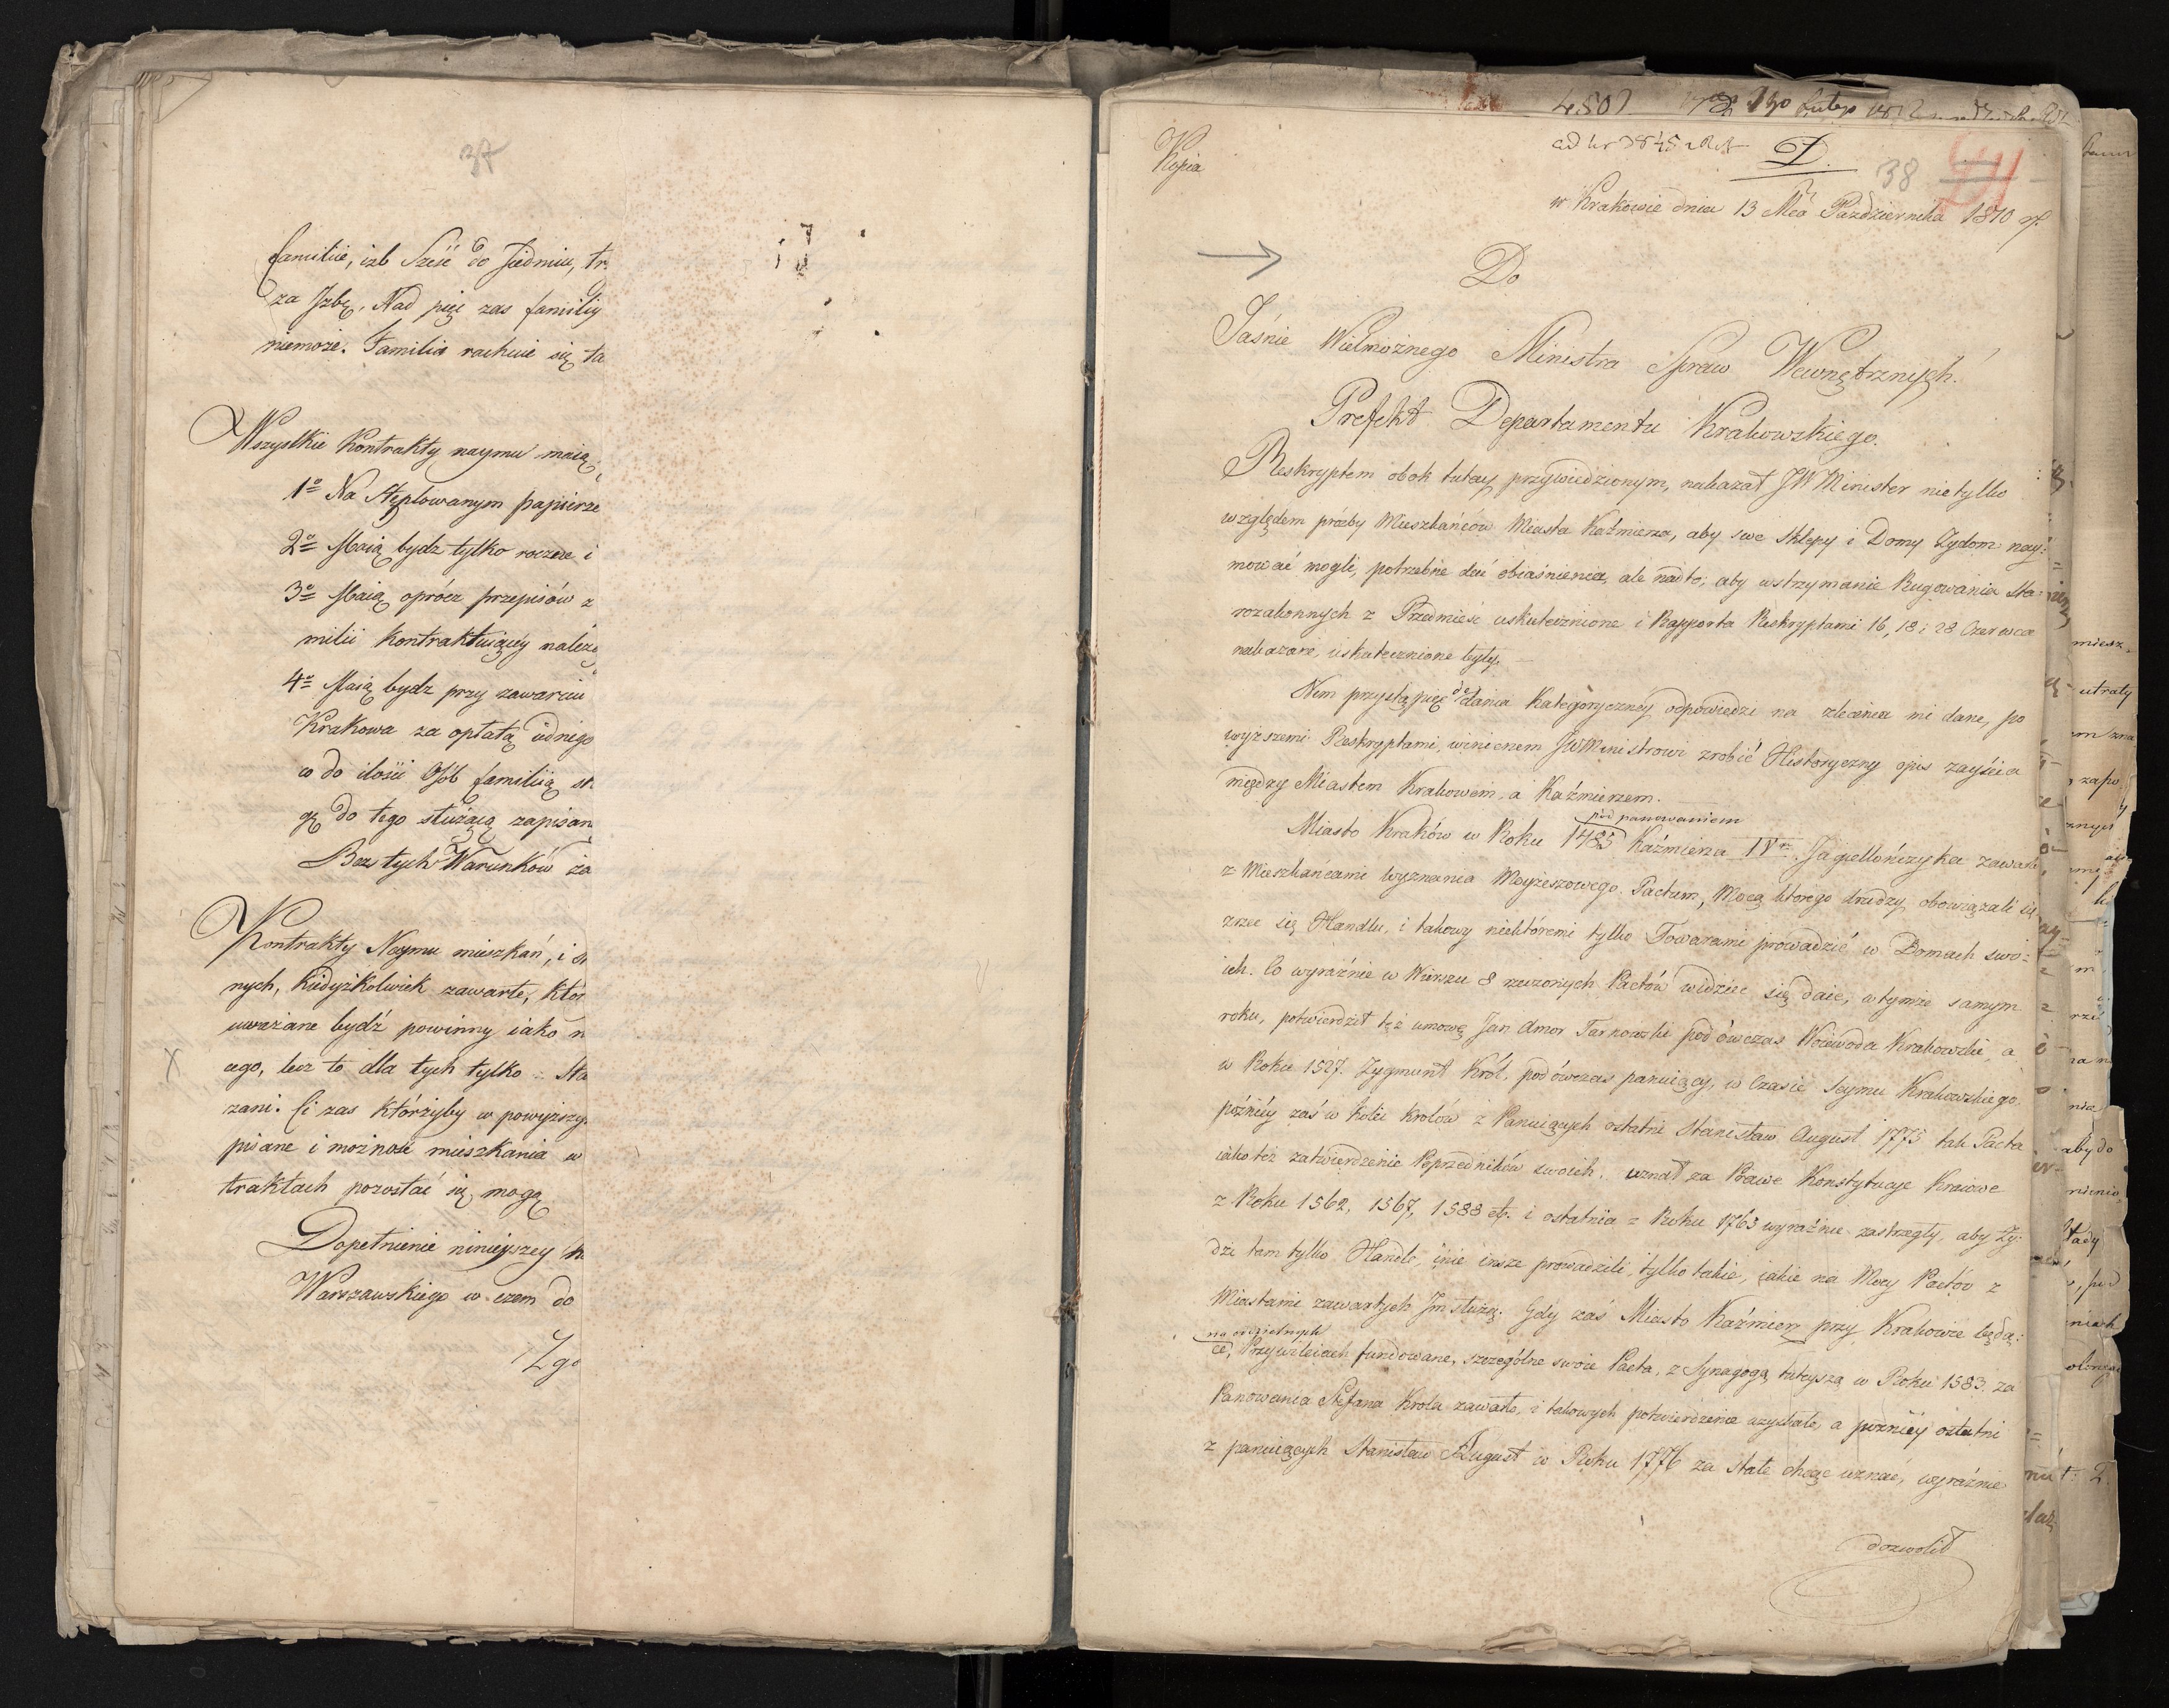 37
familie, izb Sześć do Siedmiu, tr.
za Jzbę. Nad pięć zas familiy
niemoże. Familia rachuie się ta
Wszystkie Kontrakty naymu maią
1º Na Stęplowanym papierze
2º Maią bydz tylko roczne i
3º Maią oprócz przepisów z
milii kontraktuiącéy należą
4º Maią bydz przy zawarciu
Krakowa za opłatą iednégo
w do ilości Osób familiią st
gę do tego służącą zapisan
Bez tych Warunków ża
Kontrakty Naymu mieszkań, i S
nych, kiedyżkolwiek zawarte, któr
uważane bydź powinny iako n
cego, lecz to dla tych tylko Sta
zani. Ci zas którzyby w powyższy
pisane i możność mieszkania w
traktach pozostać się mogą
Dopełnienie ninieyszey
Warszawskiego w czem do
Zgo
4501. Lutego
Kopia
D.
38
w Krakowie dnia 13 Mca Października 1810 r.
Do
Jaśnie Wielmożnego Ministra Spraw Wewnętrznych.
Prefekt Departamentu Krakowskiego.
Reskryptem obok tutay przywiedzionym, nakazał JW Minister nietylko
względem prośby Mieszkańców Miasta Kaźmierza, aby swe Sklepy i Domy Żydom nay:
mować mogli, potrzebne dać obiaśnienia, ale nadto; aby wstrzymanie Rugowania Sta:
rozakonnych z Przedmieść uskutecznione i Rapporta Reskryptami 16, 18 i 28 Czerwca
nakazane, uskutecznione były. —
Nim przystąpię do dania Kategorycznéy odpowiedzi na zlecenia mi dane, po
wyższemi Reskryptami, winienem JW Ministrowi zrobić Historyczny opis zayścia
między Miastem Krakowem, a Kaźmierzem.
pod panowaniem
Miasto Kraków w Roku 1485 Kaźmierza IVº Jagiellończyka zawarło
z Mieszkańcami Wyznania Moyżeszowego Pactum, Mocą którego drudzy obowiązali się
zrzec się Handlu, i takowy niektóremi tylko Towarami prowadzić w Domach swo:
ich. Co wyraźnie w Wierszu 8 rzeczonych Pactów widzieć się daie, w tymże samym
roku, potwierdził tęż umowę Jan Amor Tarnowski podówczas Woiewoda Krakowski, a
w Roku 1527. Zygmunt Król, podówczas panuiący, w Czasie Seymu Krakowskiego
późniéy zaś w kolei Królów z Panuiących ostatni Stanisław August 1775 tak Pacta
iako też zatwierdzenie Poprzedników swoich, uznał za Prawe Konstytucye Kraiowe
z Roku 1562, 1567, 1588 etc. i ostatnia z Roku 1763 wyraźnie zastrzegły, aby Ży:
dzi tam tylko Handle, i nie insze prowadzili, tylko takie, iakie na Mocy Pactów z
Miastami zawartych Jm służą. Gdy zaś Miasto Kaźmierz przy Krakowie będą:
na oddzielnych
ce, Przywileiach fundowane, szczególne swoie Pacta, z Synagogą tuteyszą w Roku 1583. za
Panowania Stefana Króla zawarło, i takowych potwierdzenie uzyskało, a późniéy ostatni
z panuiących Stanisław August w Roku 1776 za stałe chcąc uznać, wyraźnie
dozwolił